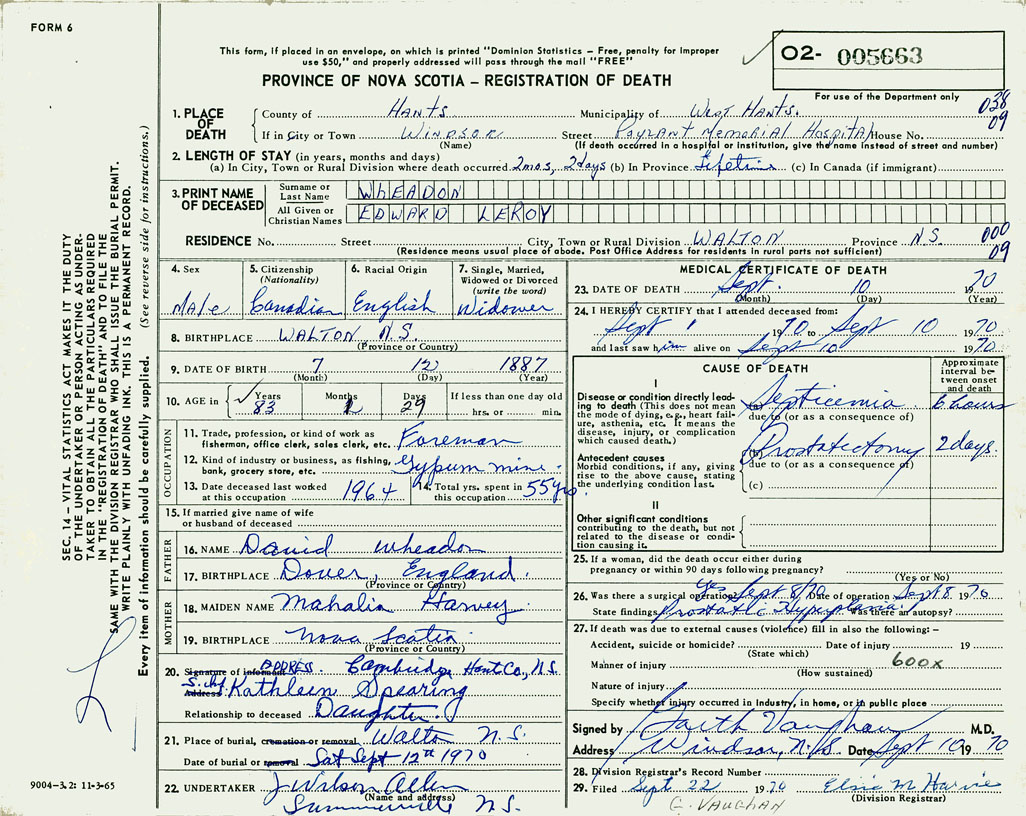 FORM 6
This form, if placed in an envelope, on which is printed "Dominion Statistics – Free, penalty for improper
use $50," and properly addressed will pass through the mail "FREE"
O2- 005663
PROVINCE OF NOVA SCOTIA – REGISTRATION OF DEATH
For use of the Department only
038
09
1. PLACE OF DEATH
County of HANTS Municipality of WEST HANTS.
If in City or Town WINDSOR Street Payzant Memorial Hospital House No.
(Name) (If death occurred in a hospital or institution, give the name instead of street and number)
2. LENGTH OF STAY (in years, months and days)
(a) In City, Town or Rural Division where death occurred 2 mos, 2 days (b) In Province Lifetime (c) In Canada (if immigrant)
3. PRINT NAME OF DECEASED
Surname or Last Name WHEADON
All Given or Christian Names EDWARD LEROY
RESIDENCE No. Street City, Town or Rural Division WALTON Province N.S. 000
09
(Residence means usual place of abode. Post Office Address for residents in rural parts not sufficient)
4. Sex
Male
5. Citizenship (Nationality)
Canadian
6. Racial Origin
English
7. Single, Married, Widowed or Divorced (write the word)
Widower
8. BIRTHPLACE WALTON N.S.
(Province or Country)
9. DATE OF BIRTH 7 12 1887
(Month) (Day) (Year)
10. AGE in Years 83 Months Days 29 If less than one day old
hrs. or min.
OCCUPATION
11. Trade, profession or kind of work as fisherman, office clerk, sales clerk, etc. Foreman
12. Kind of industry or business, as fishing, bank, grocery store, etc. Gypum mine.
13. Date deceased last worked at this occupation 1964
14. Total yrs. spent in this occupation 55 yrs.
15. If married give name of wife or husband of deceased
FATHER
16. NAME David Wheadon
17. BIRTHPLACE Dover, England.
(Province or Country)
MOTHER
18. MAIDEN NAME Mahalia Harvey.
19. BIRTHPLACE Nova Scotia
(Province or Country)
20. Signature of informant ADDRESS. Cambridge Hant Co., N.S.
Address Kathleen Spearing
Relationship to deceased Daughter.
21. Place of burial, cremation or removal Walton N.S.
Date of burial or removal Sat Sept 12th 1970
22. UNDERTAKER J Wilson Allen
(Name and address)
Summerville N.S.
MEDICAL CERTIFICATE OF DEATH
23. DATE OF DEATH Sept. 10 1970
(Month) (Day) (Year)
24. I HEREBY CERTIFY that I attended deceased from:
Sept 1 1970 to Sept 10 1970
and last saw him alive on Sept 10 1970
CAUSE OF DEATH
Approximate interval between onset and death
I
Disease or condition directly leading to death (This does not mean the mode of dying, e.g., heart failure, asthenia, etc. It means the disease, injury, or complication which caused death.)
(a) Septicemia 6 hours
due to (or as a consequence of)
Antecedent causes
Morbid conditions, if any, giving rise to the above cause, stating the underlying condition last.
(b) Prostatectomy 2 days.
due to (or as a consequence of)
(c)
II
Other significant conditions
contributing to the death, but not related to the disease or condition causing it.
25. If a woman, did the death occur either during
pregnancy or within 90 days following pregnancy?
(Yes or No)
26. Was there a surgical operation? Yes Sept 8/70 Date of operation Sept 8. 1970
State findings Prostatic Hyperplasia. Was there an autopsy?
27. If death was due to external causes (violence) fill in also the following: –
Accident, suicide or homicide? Date of injury 19
(State which)
Manner of injury 600X
(How sustained)
Nature of injury
Specify whether injury occurred in industry, in home, or in public place
Signed by Garth Vaughan M.D.
Address Windsor, N.S. Date Sept 10 1970
28. Division Registrar's Record Number
29. Filed Sept. 22 1970 Elsie M Harvie
(Division Registrar)
G. VAUGHAN
SEC. 14 – VITAL STATISTICS ACT MAKES IT THE DUTY
OF THE UNDERTAKER OR PERSON ACTING AS UNDER-
TAKER TO OBTAIN ALL THE PARTICULARS REQUIRED
IN THE "REGISTRATION OF DEATH" AND TO FILE THE
SAME WITH THE DIVISION REGISTRAR WHO SHALL ISSUE THE BURIAL PERMIT.
WRITE PLAINLY WITH UNFADING INK. THIS IS A PERMANENT RECORD.
Every item of information should be carefully supplied. (See reverse side for instructions.)
9004–3.2: 11-3-65